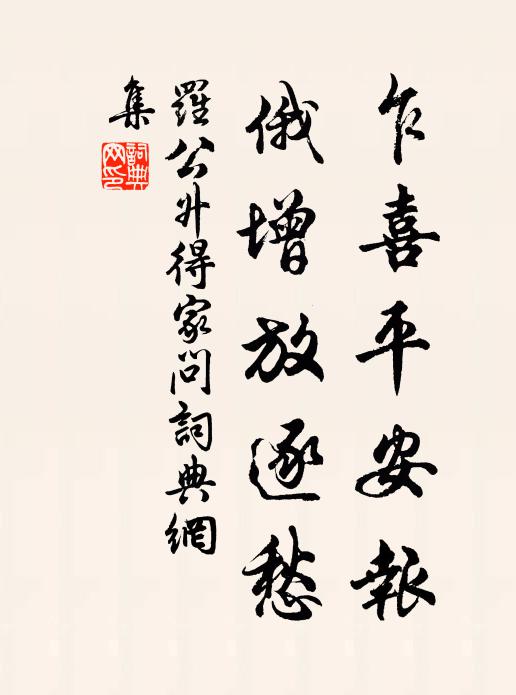 乍喜平安報
俄增放逐愁
羅公升得家問詞典網
集
詞典
网印